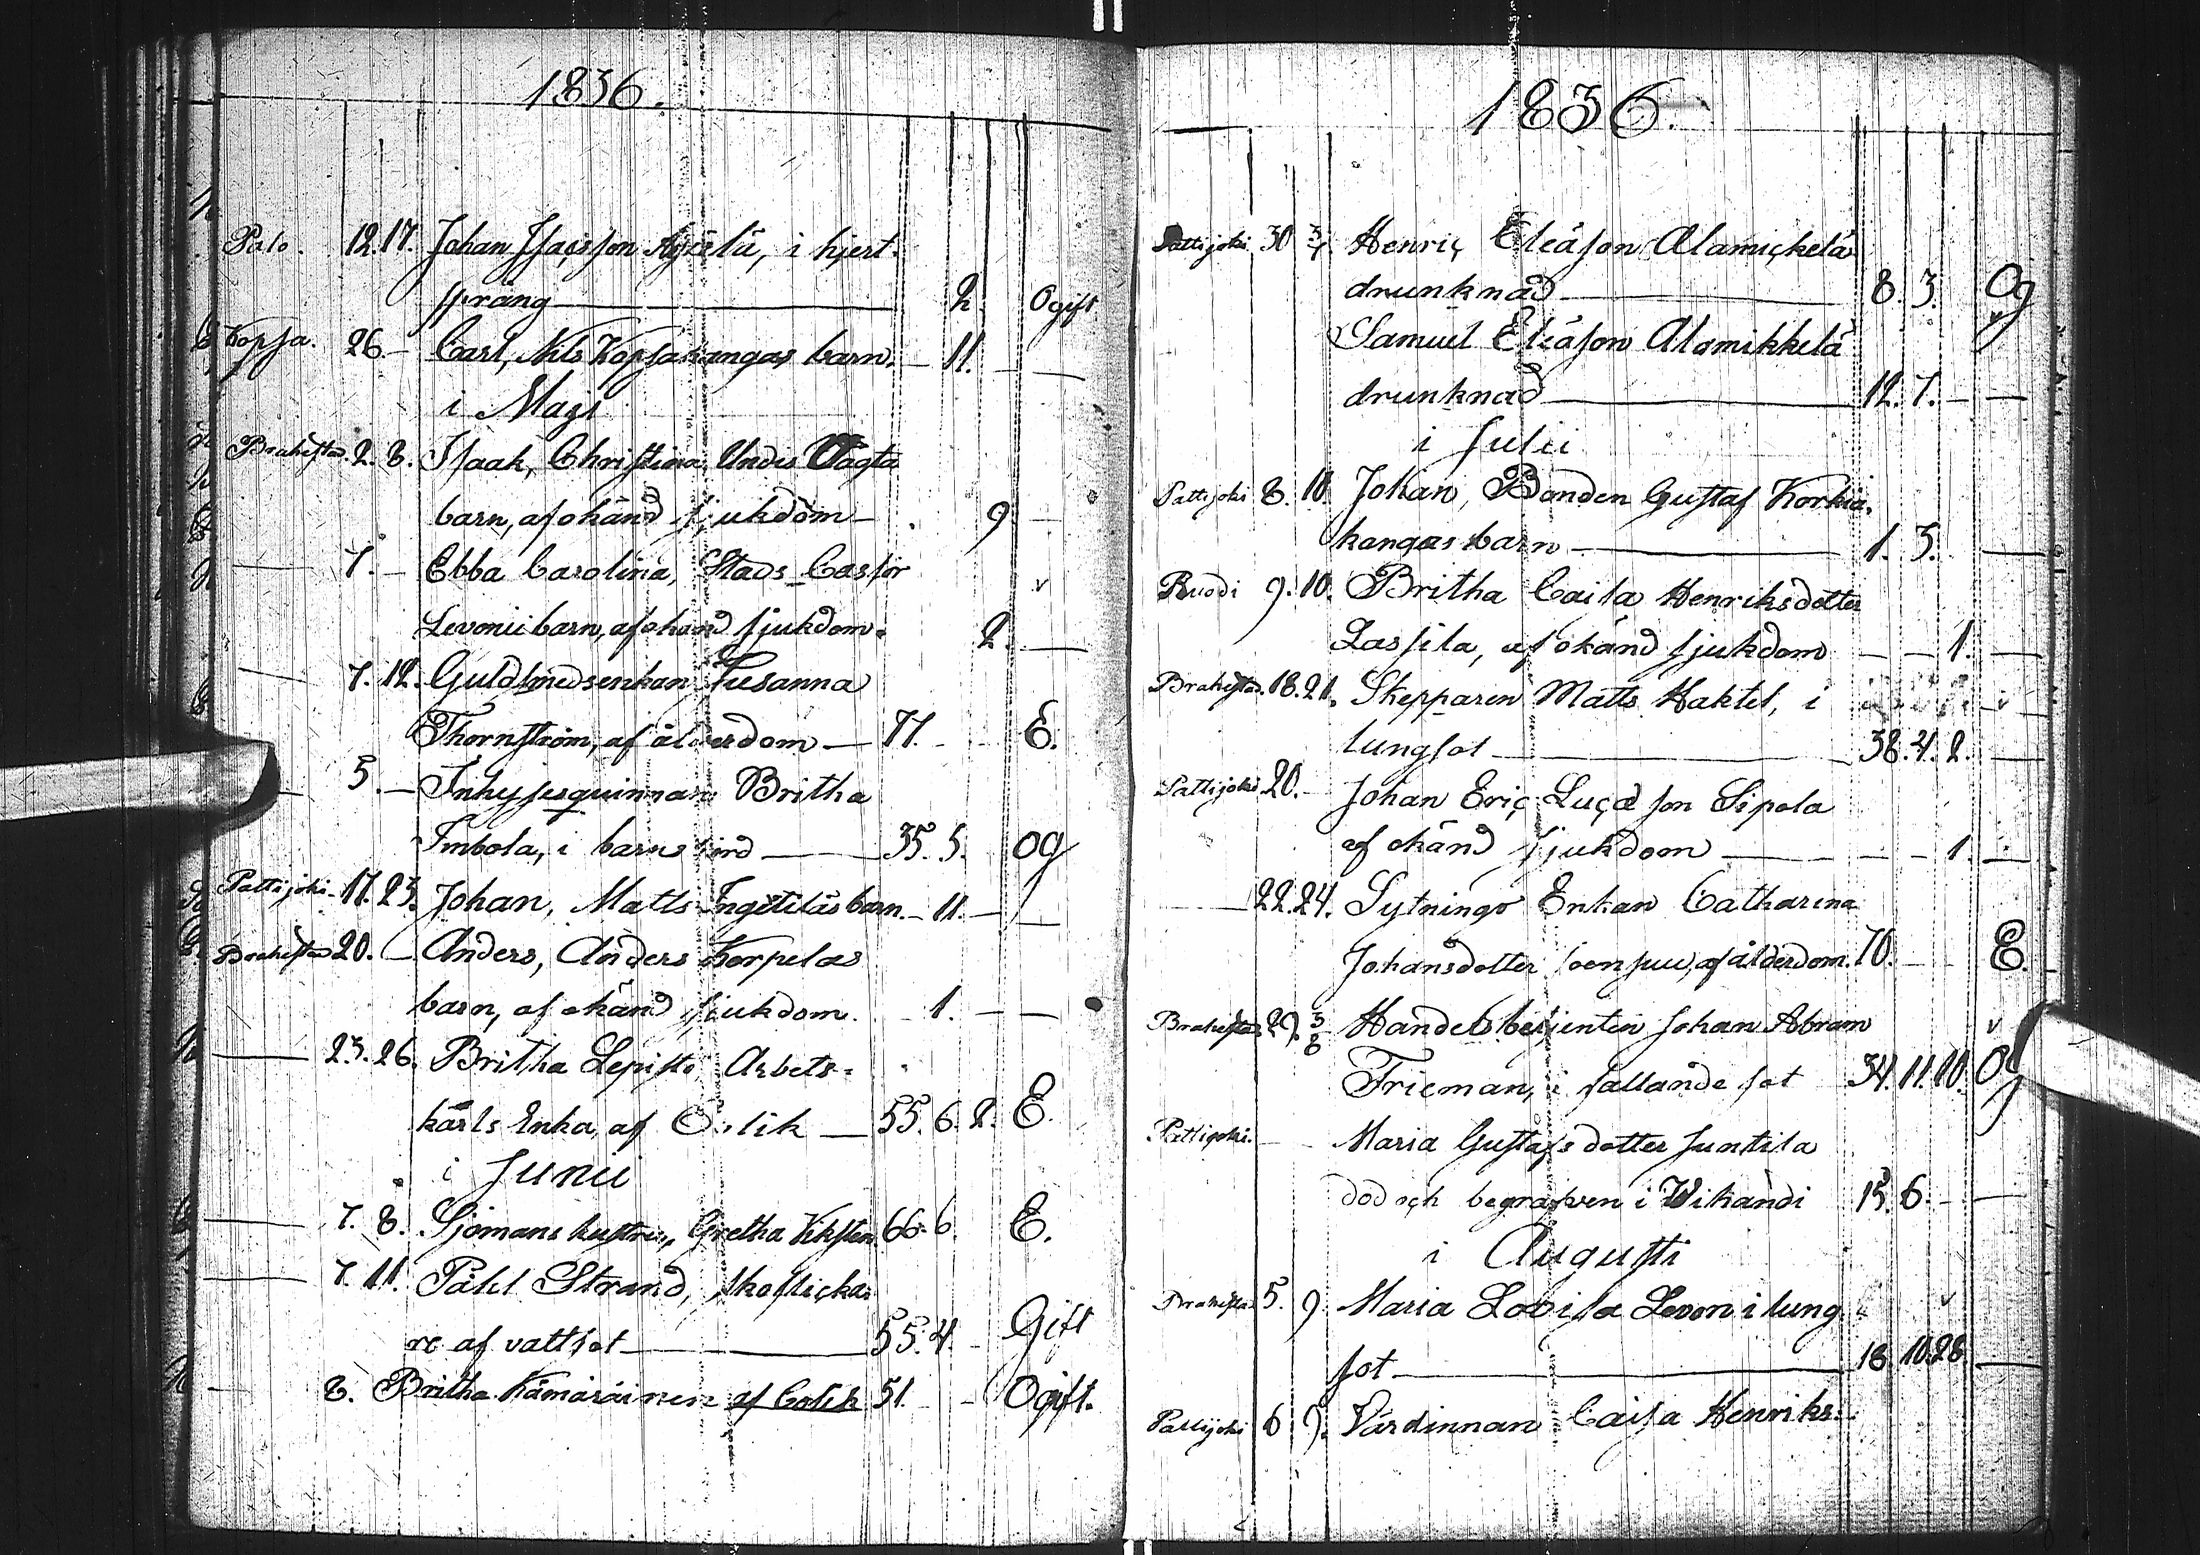 1836.
Palo. 12. 17. Johan Isacsson Äyrelä, i hjert-
språng — 2. Ogift
Kopsa. 26. — Carl, Nils Kopsakangas barn. — 11. — —
i Maji
Brahestad. 2. 8. Isaak, Christina Undis Oägta
barn, af okänd sjukdom — 9 —
— 7. — Ebba Carolina, Stads-Cassör
Levonii barn, af okänd sjukdom. 2. —
— 7. 12. Guldsmedsenkan Susanna
Thornström, af ålderdom — 77. E.
5. — Inhysesquinnan Britha
Imbola, i barnsbörd — 35. 5. Og
Pattijoki. 17. 23. Johan, Matts Ingetiläs barn. — 11. — —
Brahestad 20. — Anders, Anders Korpelas
barn, af okänd sjukdom. 1. — —
— 23. 26. Britha Lepistö, Arbets-
karls Enka, af Colik — 55. 6. 2. E.
i Junii
— 7. 8. Sjömans hustru, Gretha Viksten. 66. 6. E.
— 7. 11. Påhl Strand, skoflicka-
re af vattsot — 55. 4. Gift
— 8. Britha Kämäräinen af Colik 51. — Ogift.
1836.
Pattijoki 30 3/7. Henric Eleasson Alamickelä
drunknad — 8. 3. Og
Samuel Eleasson Alamikkelä
drunknad — 12. 7. — —
i Julii
Pattijoki 8. 10. Johan, Bonden Gustaf Korkia-
kangas barn — 1. 3. —
Ruodi 9. 10. Britha Caisa Henriksdotter
Lassila, af okänd sjukdom — — 1. —
Brahestad. 18. 21. Skepparen Matts Haktel, i
lungsot — 38. 4. 2. —
Pattijoki 20. — Johan Eric Lucasson Sipola
af okänd sjukdom — — — 1. —
— 22. 24. Sytnings Enkan Catharina
Johansdotter af ålderdom. 70. — E.
Brahestad 29. 3/8 Handelsbetjenten Johan Abram
Frieman, i fallande sot 34. 11. 10. Og
Pattijoki. — Maria Gustafsdotter Juntila
död och begrafven i Wikandi 15. 6. — —
i Augusti
Brahestad 5. 9. Maria Lovisa Levon i lung
sot — 18. 10. 28. —
Pattijoki 6 9. Värdinnan Caisa Henriks-